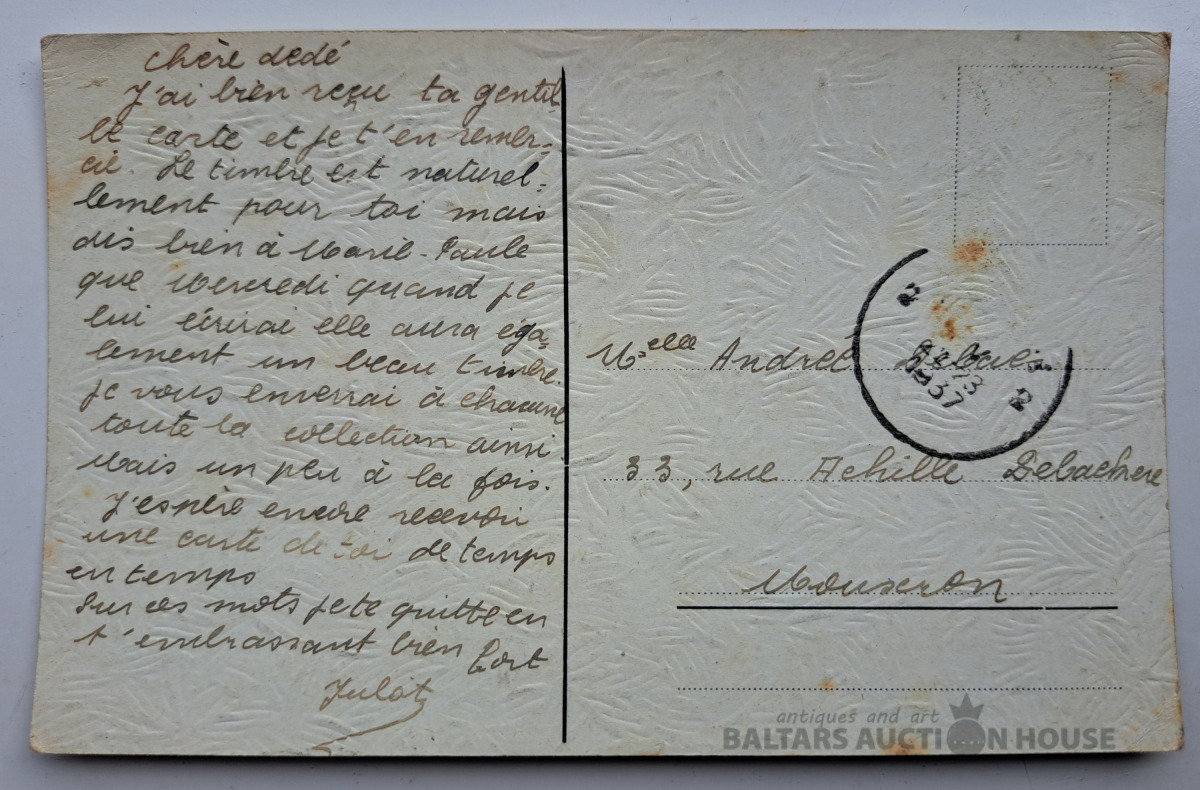 chère dedé
J'ai bien reçu ta gentil
le carte et je t'en remer-
cie. Le timbre est naturel-
lement pour toi mais
dis bien à Marie-Paule
que Mercredi quand je
lui écrirai elle aura éga-
lement un beau timbre.
je vous enverrai à chacune
toute la collection ainsi
Mais un peu à la fois.
J'espère encore recevoir
une carte de toi de temps
en temps
Sur ces mots je te quitte en
t'embrassant bien
fort
Julot
2
1937
2
Melle Andrée
33, rue Achille Debackere
Mouscron
antiques and art
BALTARS AUCTION HOUSE